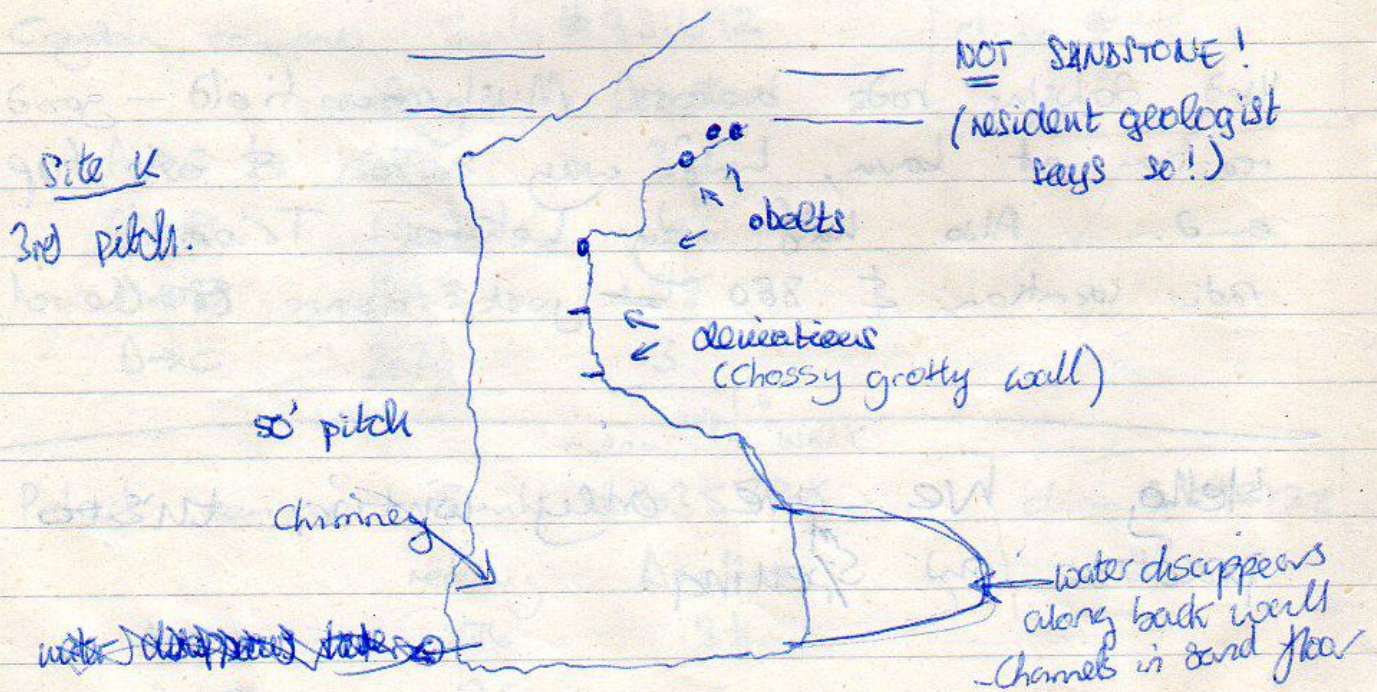 NOT SANDSTONE!
(resident geologist
says so!)
Site K
3rd pitch.
bolts
deviations
(Chossy grotty wall)
50' pitch
Chimney
water disappears
along back wall
-Channels in sand floor
water disappears